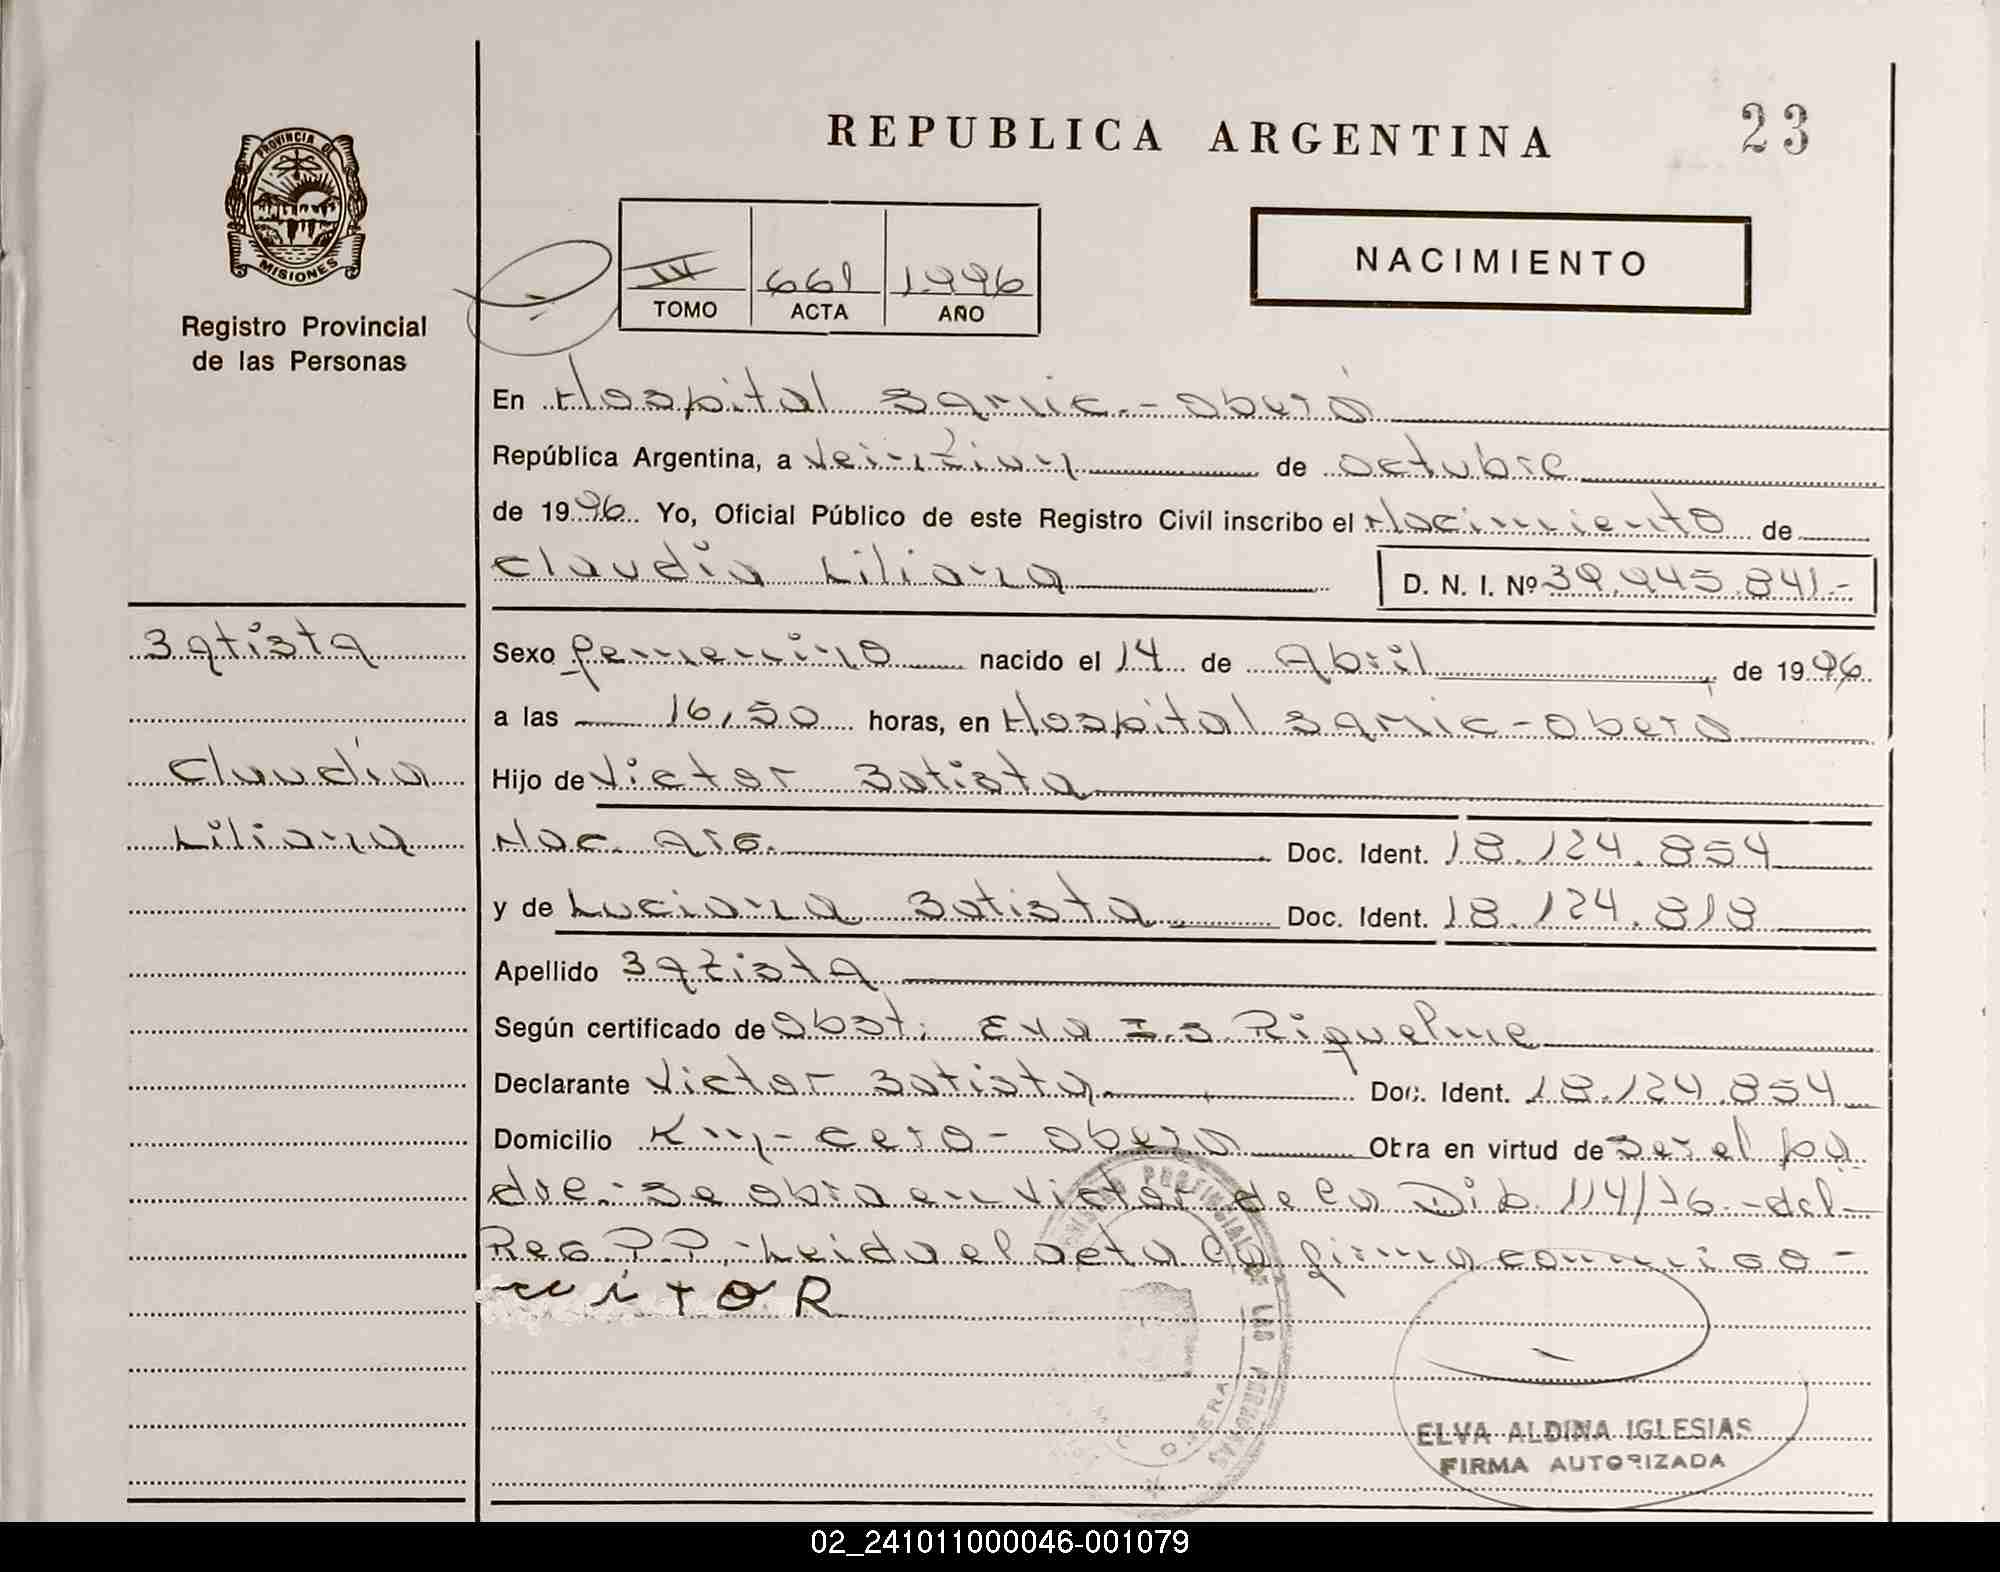 REPUBLICA ARGENTINA
23
PROVINCIA DE
MISIONES
Registro Provincial
de las Personas
IV 661 1.996
TOMO ACTA AÑO
NACIMIENTO
En Hospital Samic.- Oberá
República Argentina, a veintiun de octubre
de 1996. Yo, Oficial Público de este Registro Civil inscribo el Nacimiento de
Claudia Liliana D. N. I. Nº 39.945.841.-
Batista
Sexo femenino nacido el 14 de Abril de 1996
a las 16,50 horas, en Hospital Samic - Oberá
Claudia
Hijo de Victor Batista
Liliana
Nac. Arg. Doc. Ident. 18.124.854
y de Luciana Batista Doc. Ident. 18.124.818
Apellido Batista
Según certificado de Obst. Eva I.S Riquelme
Declarante Victor Batista Doc. Ident. 18.124.854
Domicilio Km - cero - Obera Obra en virtud de ser el pa
dre.- Se obra en victor de la Dib. 114/76.- del -
Reg P.P.- Leida el acta la firma conmigo -
vitOR
PROVINCIAL DE LAS PERSONAS
OBERA
ELVA ALDINA IGLESIAS
FIRMA AUTORIZADA
02_241011000046-001079